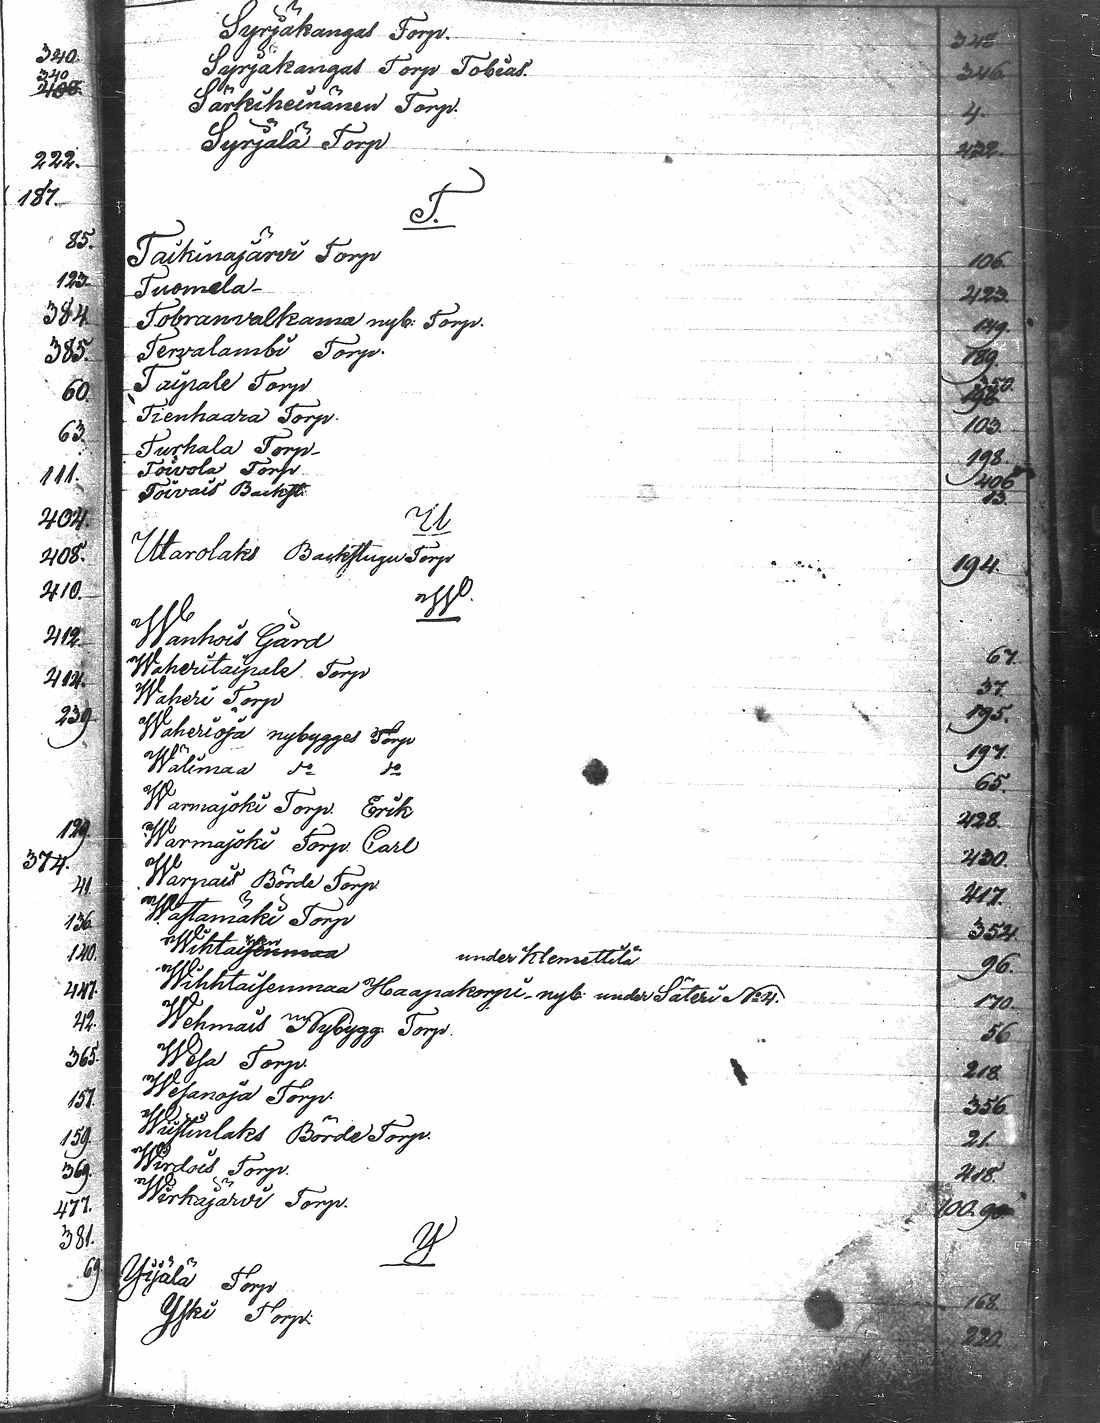 Syrjäkangas Torp. 348
340. Syrjäkangas Torp Tobias. 346
340
408 Särkiheinänen Torp. 4.
Syrjälä Torp 432
222.
187.
T.
85. Taikinajärvi Torp 106
123. Tuomela 423
384 Tobranvalkama nyb: Torp. 149.
385. Tervalambi Torp. 189
60. Taipale Torp 350. 198
Tienhaara Torp. 103
63. Turhala Torp 198
111. Toivola Torp 406
Toivais Backst: 13.
404. U
408. Uttarolaks Backstugu Torp 194.
410. W.
412. Wanhois Gård 67
414. Waheritaipale Torp 37
239 Waheri Torp 195.
Waherioja nybygges Torp 197.
Wälimaa do do 65.
Warmajoki Torp. Erik 428
129. Warmajoki Torp. Carl 430
374. Warpais Börde Torp 417.
41
136. Wästamäki Torp 352
140. Wihtaisenmaa under Klemettilä 96.
447. Wihhtaisenmaa Haapakorpi nyb. under Säteri No 4. 170
42. Wehmais Nybygg: Torp. 56
365. Wesa Torp. 218
157. Wesanoja Torp. 356
159. Wiistinlaks Börde Torp. 21.
369. Wirdois Torp. 418.
477. Wirkajärvi Torp. 100.
381. Y
69 Yijälä Torp 168
Yski Torp. 220.